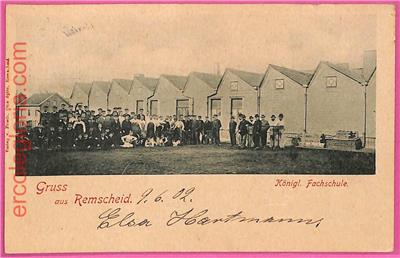 ercolegloria.com
Gruss
aus Remscheid.
Königl. Fachschule.
9. 6. 02.
Elsa Hartmann